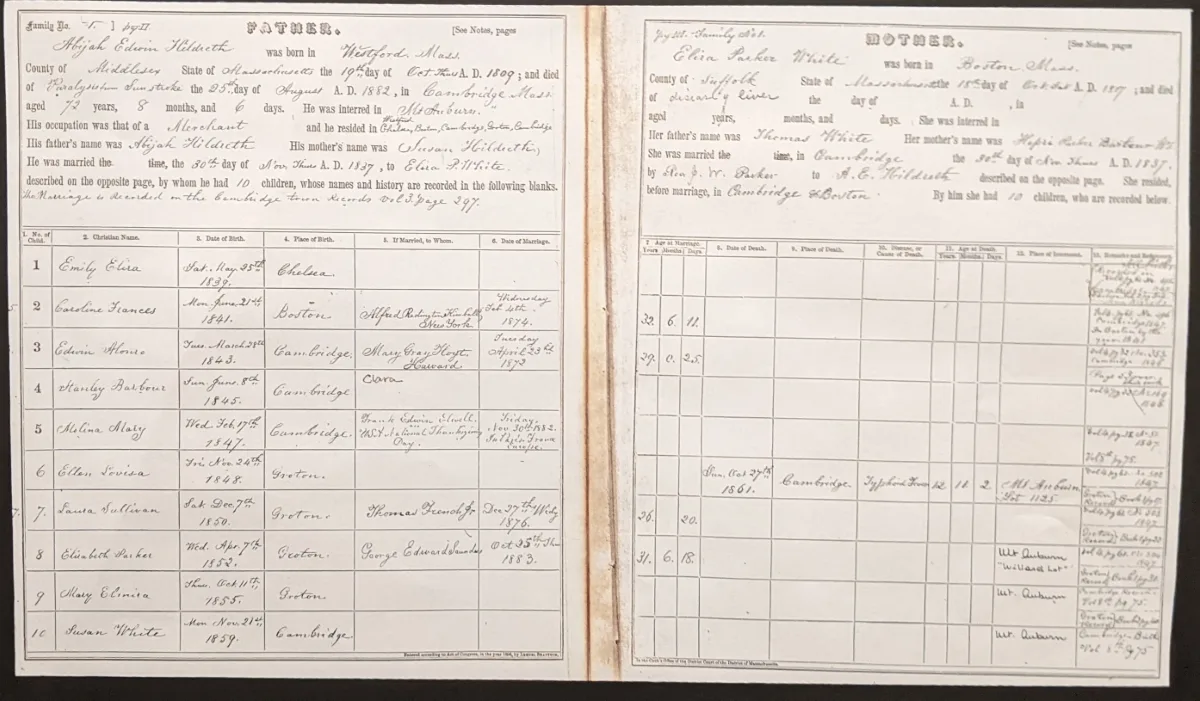 Family No. 1. ] pg II FATHER. [See Notes, pages
Abijah Edwin Hildreth was born in Westford, Mass.
County of Middlesex State of Massachusetts the 19th day of Oct Thurs A. D. 1809; and died
of Paralysis Sunstroke the 25th day of August A. D. 1882, in Cambridge Mass
aged 72 years, 8 months, and 6 days. He was interred in Mt Auburn.
His occupation was that of a Merchant and he resided in Westford, Chelsea, Boston, Cambridge, Groton, Cambridge
His father's name was Abijah Hildreth His mother's name was Susan Hildreth;
He was married the time, the 30th day of Nov. Thurs A. D. 1837, to Eliza P. White.
described on the opposite page, by whom he had 10 children, whose names and history are recorded in the following blanks.
The Marriage is recorded on the Cambridge town Records Vol 3. page 297.
1. No. of Child. 2. Christian Name. 3. Date of Birth. 4. Place of Birth. 5. If Married, to Whom. 6. Date of Marriage.
1 Emily Eliza Sat. May 25th 1839. Chelsea
2 Caroline Frances Mon. June 21st, 1841. Boston Alfred Redington Kimball, New York Wednesday Feb 4th 1874.
3 Edwin Alonzo Tues. March 28th 1843. Cambridge, Mary Gray Hoyt Harvard Tuesday April 23rd 1872
4 Stanley Barbour Sun. June. 8th 1845. Cambridge Clara
5 Melina Mary Wed. Feb 17th 1847. Cambridge. Frank Edwin Elwell. U.S.A National Thanksgiving Day. Friday, Nov 30th 1882. In France Europe.
6 Ellen Lovisa Fri. Nov. 24th 1848. Groton.
7. Laura Sullivan Sat Dec. 7th 1850. Groton. Thomas French Jr Dec 27th Wedy 1876.
8 Elizabeth Parker Wed. Apr. 7th 1852. Groton. George Edward Saunders Oct 25th, Thu 1883.
9 Mary Elmira Thur. Oct 11th, 1855. Groton.
10 Susan White Mon Nov. 21st, 1859. Cambridge
Entered according to Act of Congress, in the year
pg 101. Family No 1. MOTHER. [See Notes, pages
Eliza Parker White was born in Boston Mass.
County of Suffolk State of Massachusetts the 18th day of Oct Sat A. D. 1817; and died
of disease of liver the day of A. D. , in
aged years, months, and days. She was interred in
Her father's name was Thomas White Her mother's name was Barbour
She was married the time, in Cambridge the 30th day of Nov. Thurs A. D. 1837.
by Rev J. W. Parker to A. E. Hildreth described on the opposite page. She resided,
before marriage, in Cambridge & Boston. By him she had 10 children, who are recorded below.
7. Age at Marriage. Years. Months. Days. 8. Date of Death. 9. Place of Death. 10. Disease, or Cause of Death. 11. Age at Death. Years. Months. Days. 12. Place of Interment. 13. Remarks and References.
32. 6. 11.
29. 0. 25.
Sun. Oct 27th 1861. Cambridge. Typhoid Fever 12 11 2 Mt Auburn Lot 1125.
26. 20.
31. 6. 18. Mt Auburn "Willard Lot"
Mt. Auburn
Mt. Auburn
In the Clerk's Office of the District Court of the District of Massachusetts.